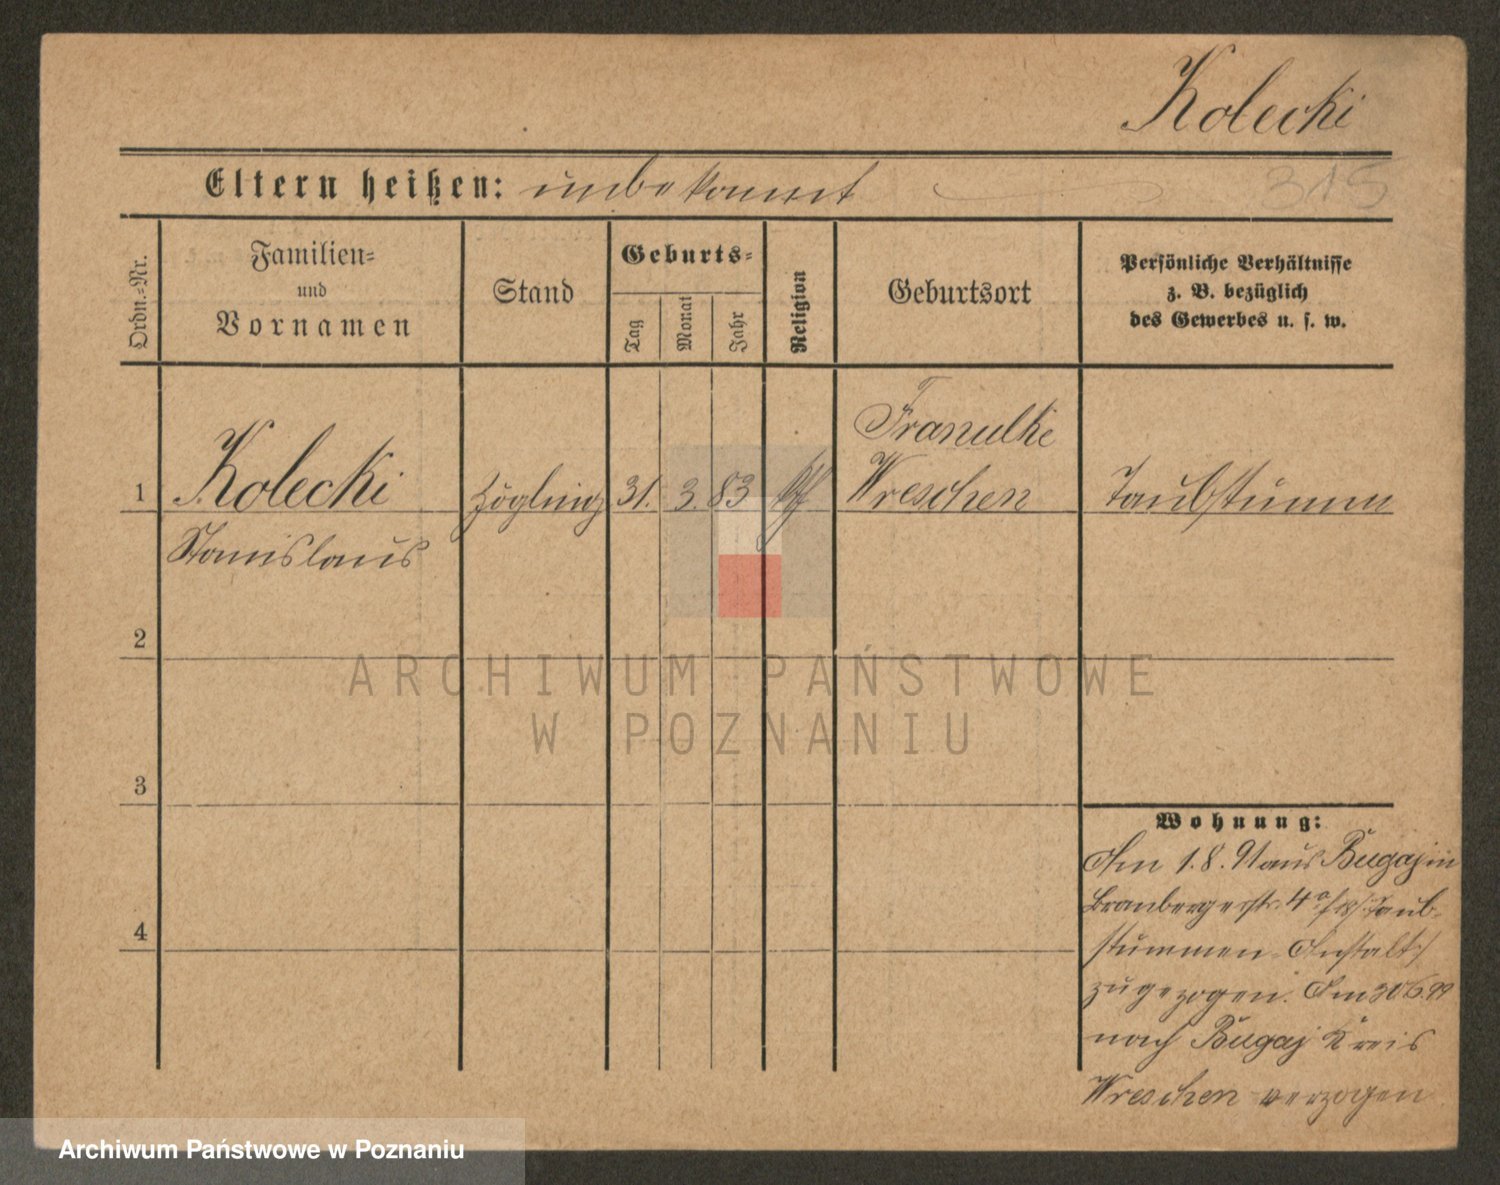 Kolecki
Eltern heißen: unbekannt
315
Ordn.-Nr.
Familien-
und
Vornamen
Stand
Geburts-
Tag
Monat
Jahr
Religion
Geburtsort
Persönliche Verhältnisse
z. B. bezüglich
des Gewerbes u. s. w.
1
Kolecki
Stanislaus
Zögling
31.
3.
83
Franulke
Wreschen
Taubstumm
2
3
4
Wohnung:
Am 1. 8. 91 aus Bugaj in
4a Taub-
stummen-Anstalt
zugezogen. Am 30/6.99
nach Bugaj Kreis
Wreschen verzogen
ARCHIWUM PAŃSTWOWE
W POZNANIU
Archiwum Państwowe w Poznaniu